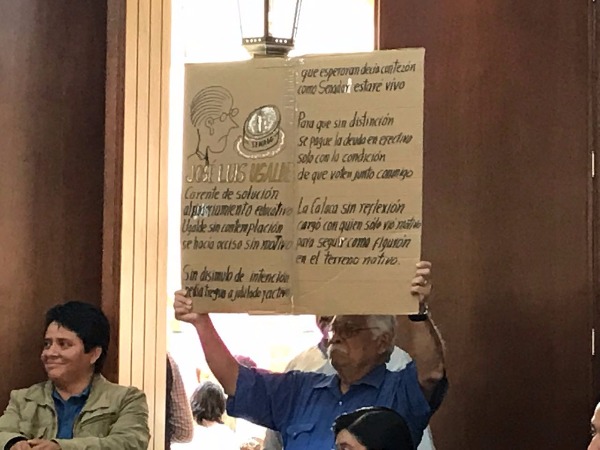 JOSÉ LUIS UGALDE
Carente de solución
educativo
Ugalde sin contemplación
se hacía occiso sin motivo
Sin disimulo de intención
a jubilado y activo
que esperaran decía con tezón
como Senador estare vivo
Para que sin distinción
se pague la deuda en efectivo
solo con la condición
de que voten junto conmigo
La Calaca sin reflexión
cargó con quien solo vio motivo
para seguir como figurón
en el terreno nativo.